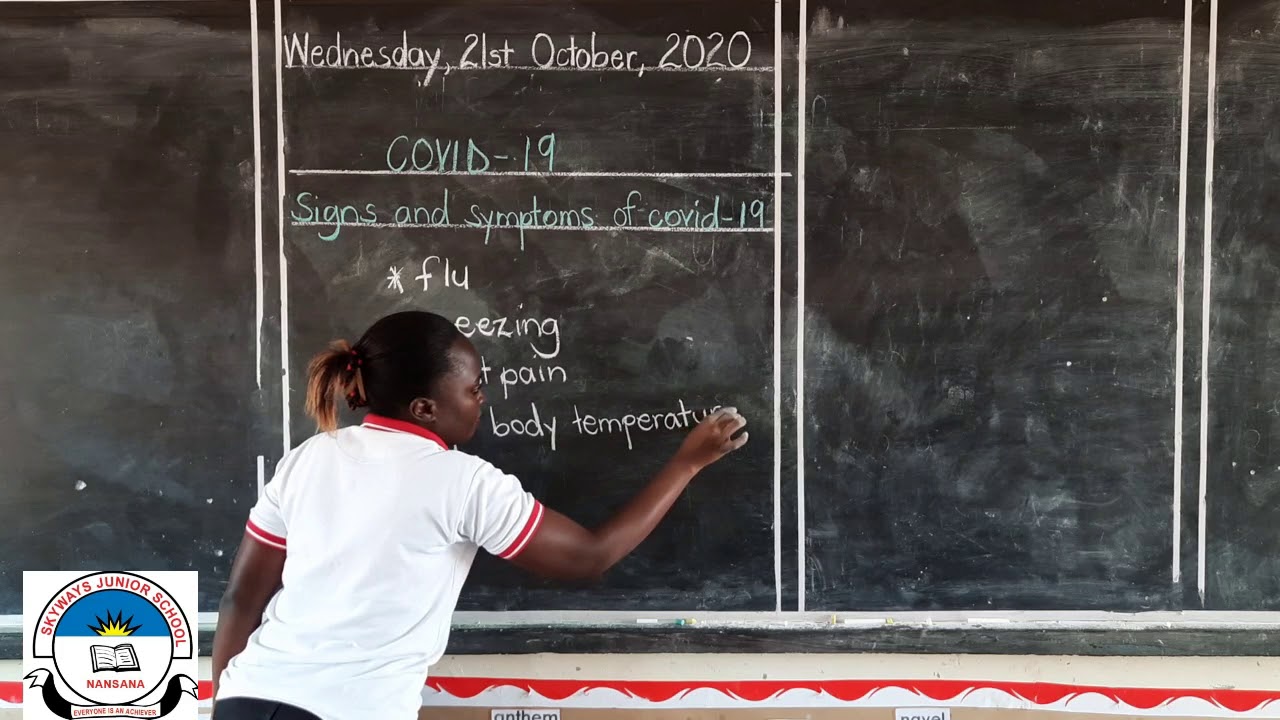 Wednesday, 21st October, 2020
COVID-19
Signs and symptoms of covid-19
* flu
eezing
t pain
body temperatur
SKYWAYS JUNIOR SCHOOL
NANSANA
EVERYONE IS AN ACHIEVER
anthem
navel